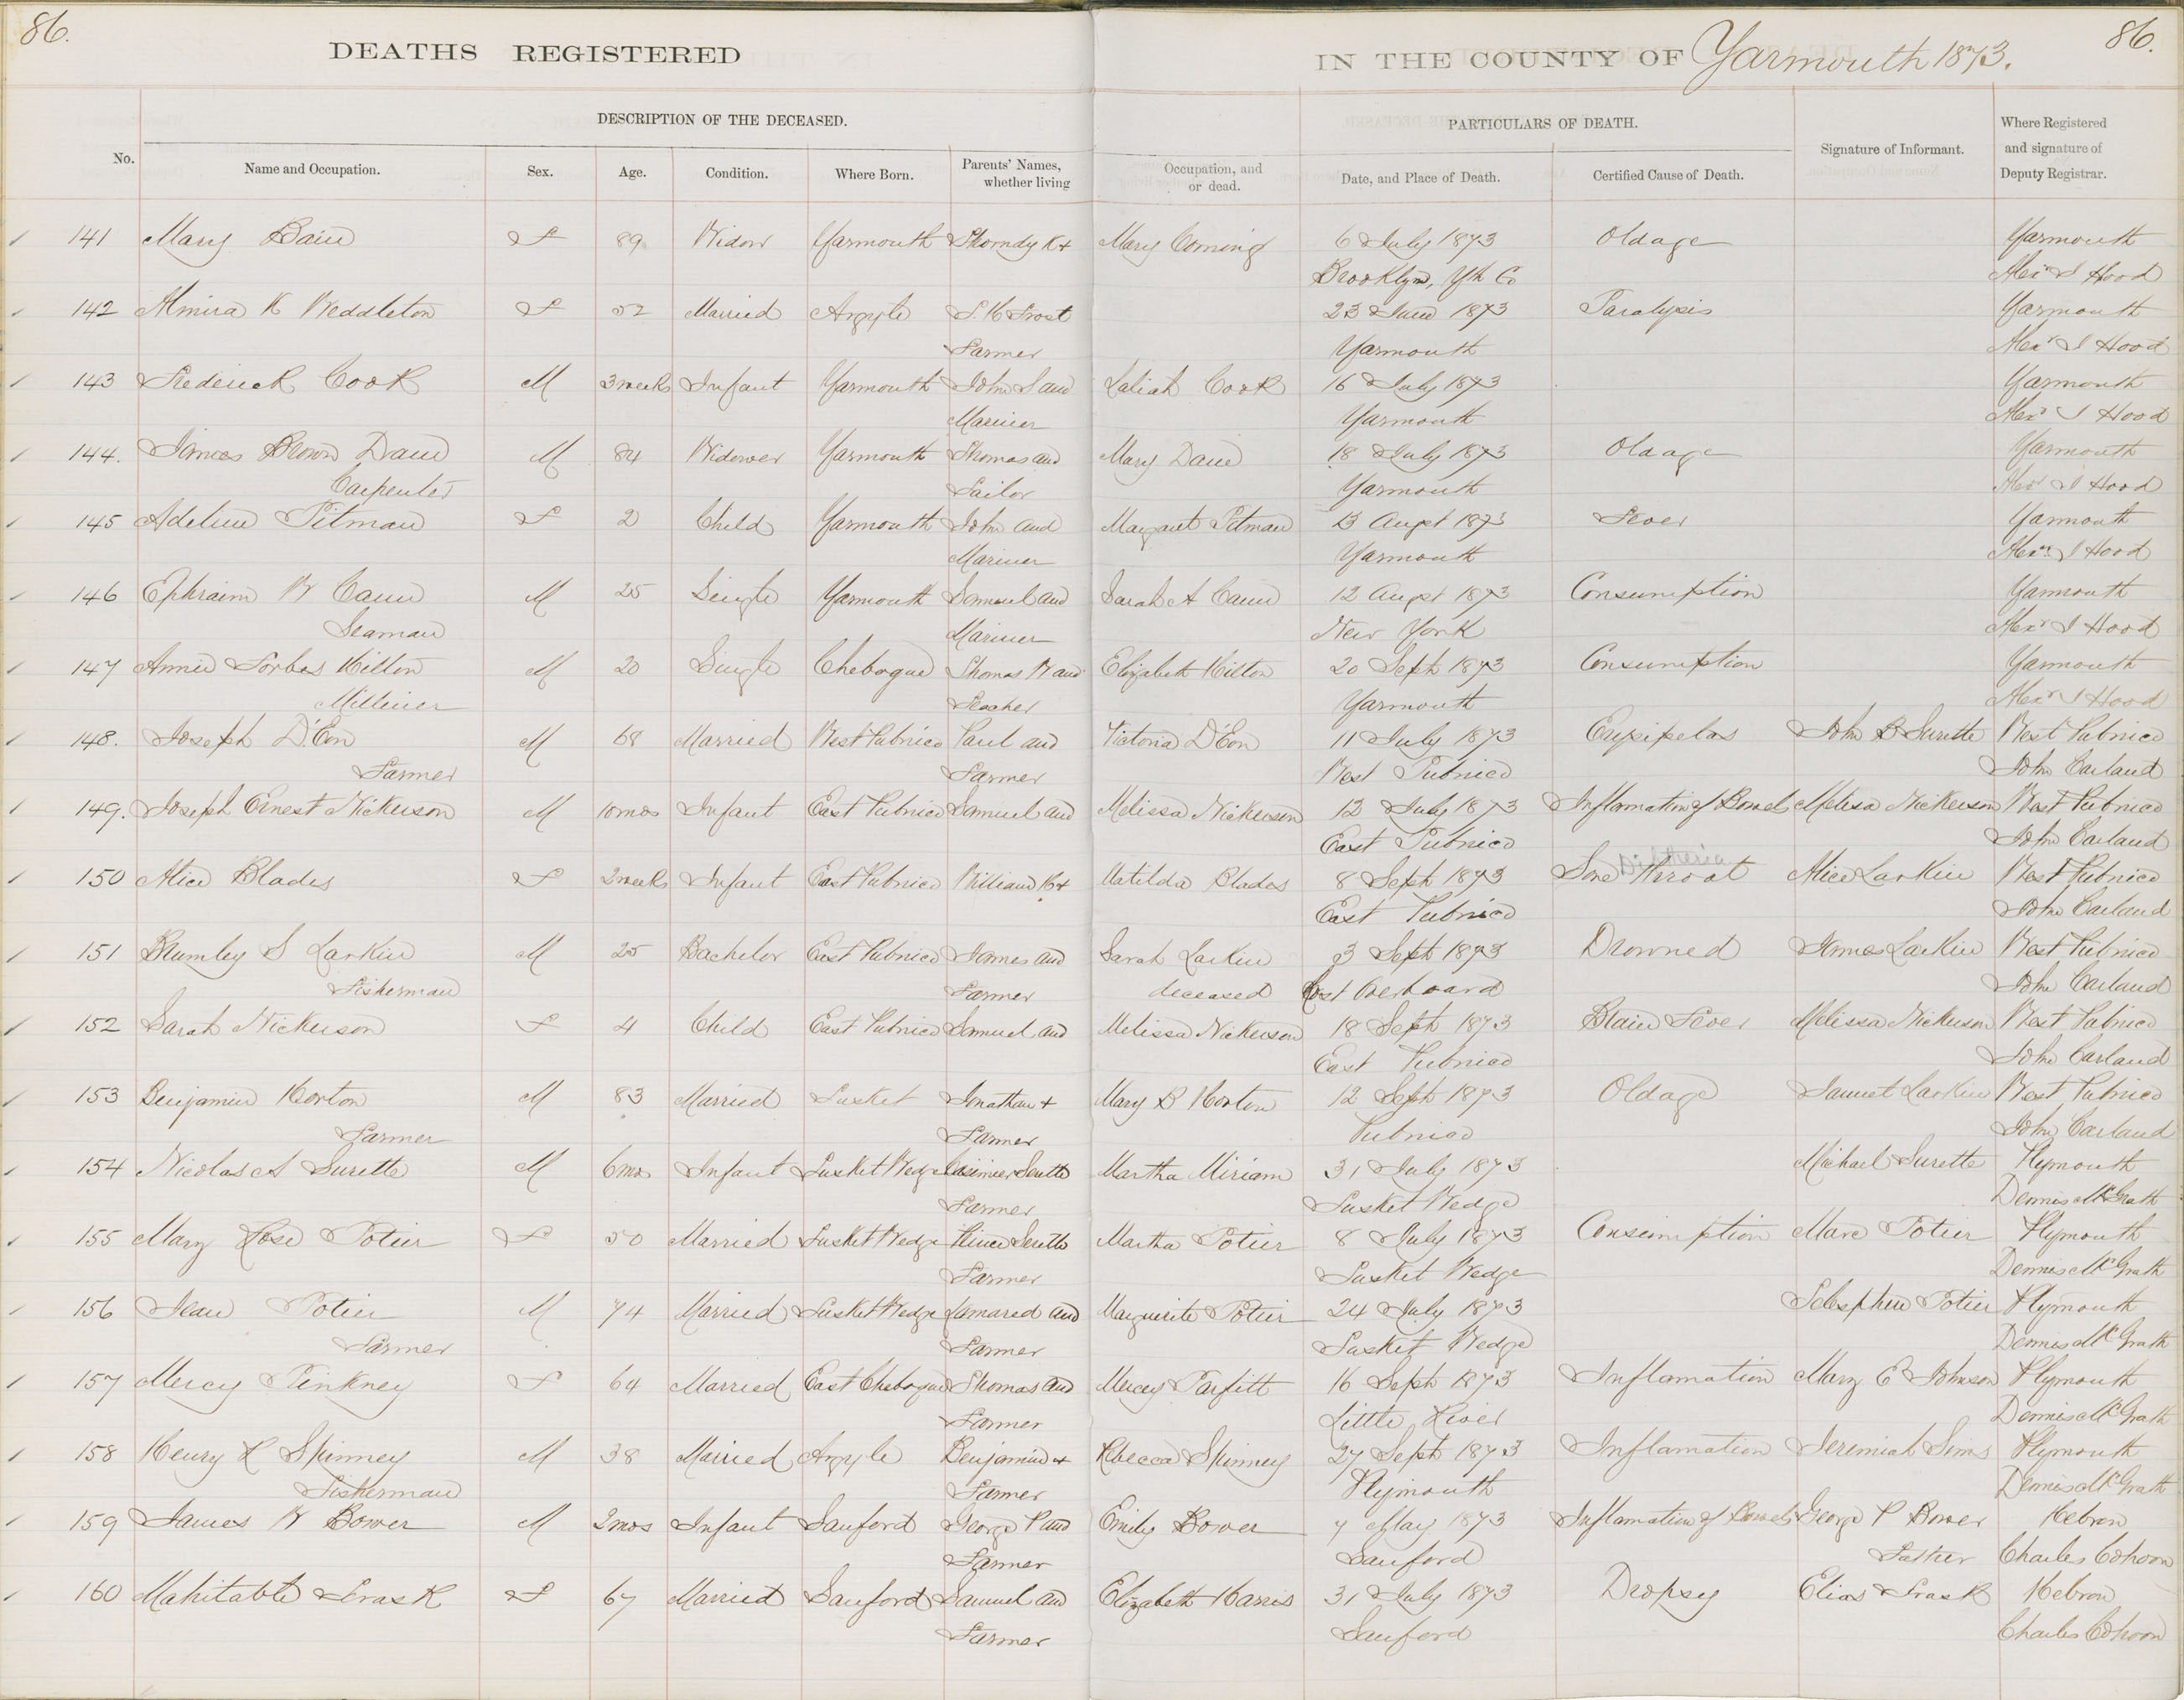 86.
DEATHS REGISTERED
IN THE COUNTY OF Yarmouth 1873.
86.
DESCRIPTION OF THE DECEASED.
PARTICULARS OF DEATH.
No.
Name and Occupation.
Sex.
Age.
Condition.
Where Born.
Parents' Names, whether living
Occupation, and or dead.
Date, and Place of Death.
Certified Cause of Death.
Signature of Informant.
Where Registered and signature of Deputy Registrar.
141 Mary Bain F 89 Widow Yarmouth Thorndyk + Mary Coming 6 July 1873 Old age Yarmouth
Brooklyn, Yth Co Alexr J Hood
142 Almira K Weddleton F 52 Married Argyle S. H Frost 23 June 1873 Paralysis Yarmouth
Farmer Yarmouth Alexr J Hood
143 Frederick Cook M 3 weeks Infant Yarmouth John S and Laliah Cook 16 July 1873 Yarmouth
Mariner Yarmouth Alexr J Hood
144. James Brown Dane M 84 Widower Yarmouth Thomas and Mary Dane 18 July 1873 Old age Yarmouth
Carpenter Sailor Yarmouth Alexr J Hood
145 Adeline Pitman F 2 Child Yarmouth John and Margaret Pitman 13 Augst 1873 Fever Yarmouth
Mariner Yarmouth Alexr J Hood
146 Ephraim W Cann M 25 Single Yarmouth Samuel and Sarah A Cann 12 Augst 1873 Consumption Yarmouth
Seaman Mariner New York Alexr J Hood
147 Annie Forbes Hilton M 20 Single Chebogue Thomas W and Elizabeth Hilton 20 Sept 1873 Consumption Yarmouth
Milliner Teacher Yarmouth Alexr J Hood
148. Joseph D'Eon M 68 Married West Pubnico Paul and Victoria D'Eon 11 July 1873 Erysipelas John B Surette West Pubnico
Farmer Farmer West Pubnico John Carland
149. Joseph Ernest Nickerson M 10 mos Infant East Pubnico Samuel and Melissa Nickerson 12 July 1873 Inflamation of Bowels Melissa Nickerson West Pubnico
East Pubnico John Carland
150 Alice Blades F 2 weeks Infant East Pubnico William H + Matilda Blades 8 Sept 1873 Sore Throat Diptheria Alice Larkin West Pubnico
East Pubnico John Carland
151 Brumley S Larkin M 25 Bachelor East Pubnico James and Sarah Larkin 3 Sept 1873 Drowned James Larkin West Pubnico
Fisherman Farmer deceased Lost Overboard John Carland
152 Sarah Nickerson F 4 Child East Pubnico Samuel and Melissa Nickerson 18 Sept 1873 Brain Fever Melissa Nickerson West Pubnico
East Pubnico John Carland
153 Benjamin Horton M 83 Married Tusket Jonathan + Mary B Horton 12 Sept 1873 Old age Samuel Larkin West Pubnico
Farmer Farmer Pubnico John Carland
154 Nicolas A Surette M 6 mos Infant Tusket Wedge Casimier Surette Martha Miriam 31 July 1873 Michael Surette Plymouth
Farmer Tusket Wedge Dennis McGrath
155 Mary Rose Potier F 50 Married Tusket Wedge Surette Martha Potier 8 July 1873 Consumption Marc Potier Plymouth
Farmer Tusket Wedge Dennis McGrath
156 Jean Potier M 74 Married Tusket Wedge and Marguerite Potier 24 July 1873 Potier Plymouth
Farmer Farmer Tusket Wedge Dennis McGrath
157 Mercy Pinkney F 64 Married East Chebogue Thomas and Mercy Parfitt 16 Sept 1873 Inflamation Mary E Johnson Plymouth
Farmer Little River Dennis McGrath
158 Henry R Spinney M 38 Married Argyle Benjamin + Rbecca Spinney 27 Sept 1873 Inflamation Jeremiah Sims Plymouth
Fisherman Farmer Plymouth Dennis McGrath
159 James W Bower M 2 mos Infant Sanford George P and Emily Bower 7 May 1873 Inflamation of Bowels George P Bower Hebron
Farmer Sanford Father Charles Cohoon
160 Mahitable Trask F 67 Married Sanford Samuel and Elizabeth Harris 31 July 1873 Dropsy Elias Trask Hebron
Farmer Sanford Charles Cohoon